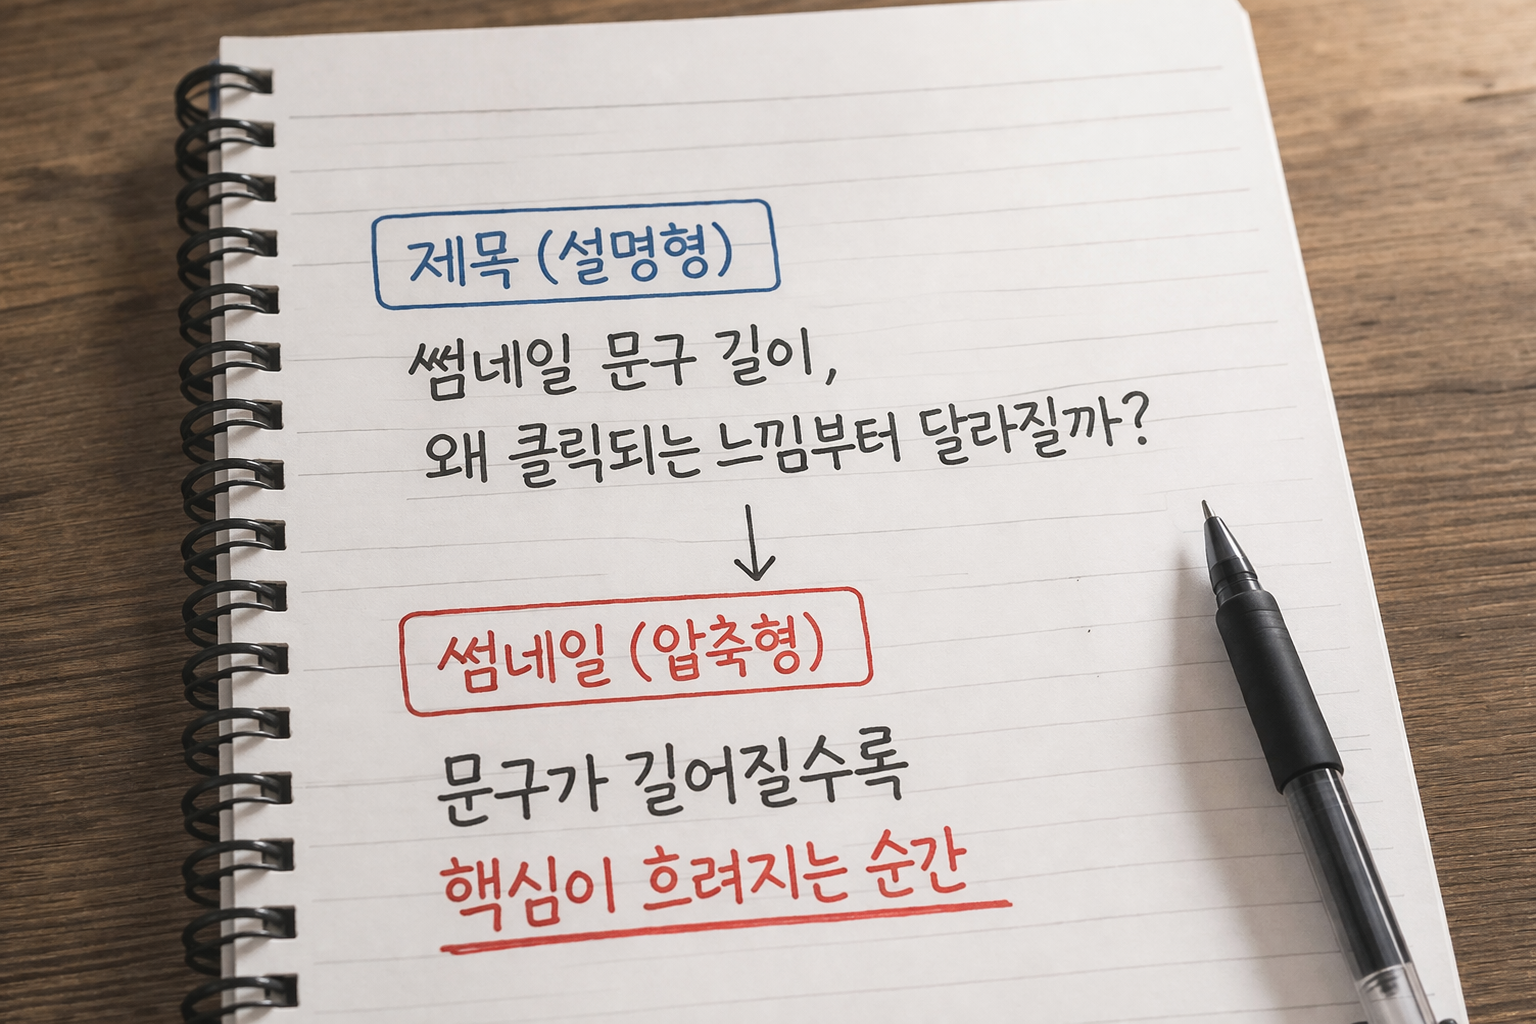 제목 (설명형)
썸네일 문구 길이,
왜 클릭되는 느낌부터 달라질까?
썸네일 (압축형)
문구가 길어질수록
핵심이 흐려지는 순간